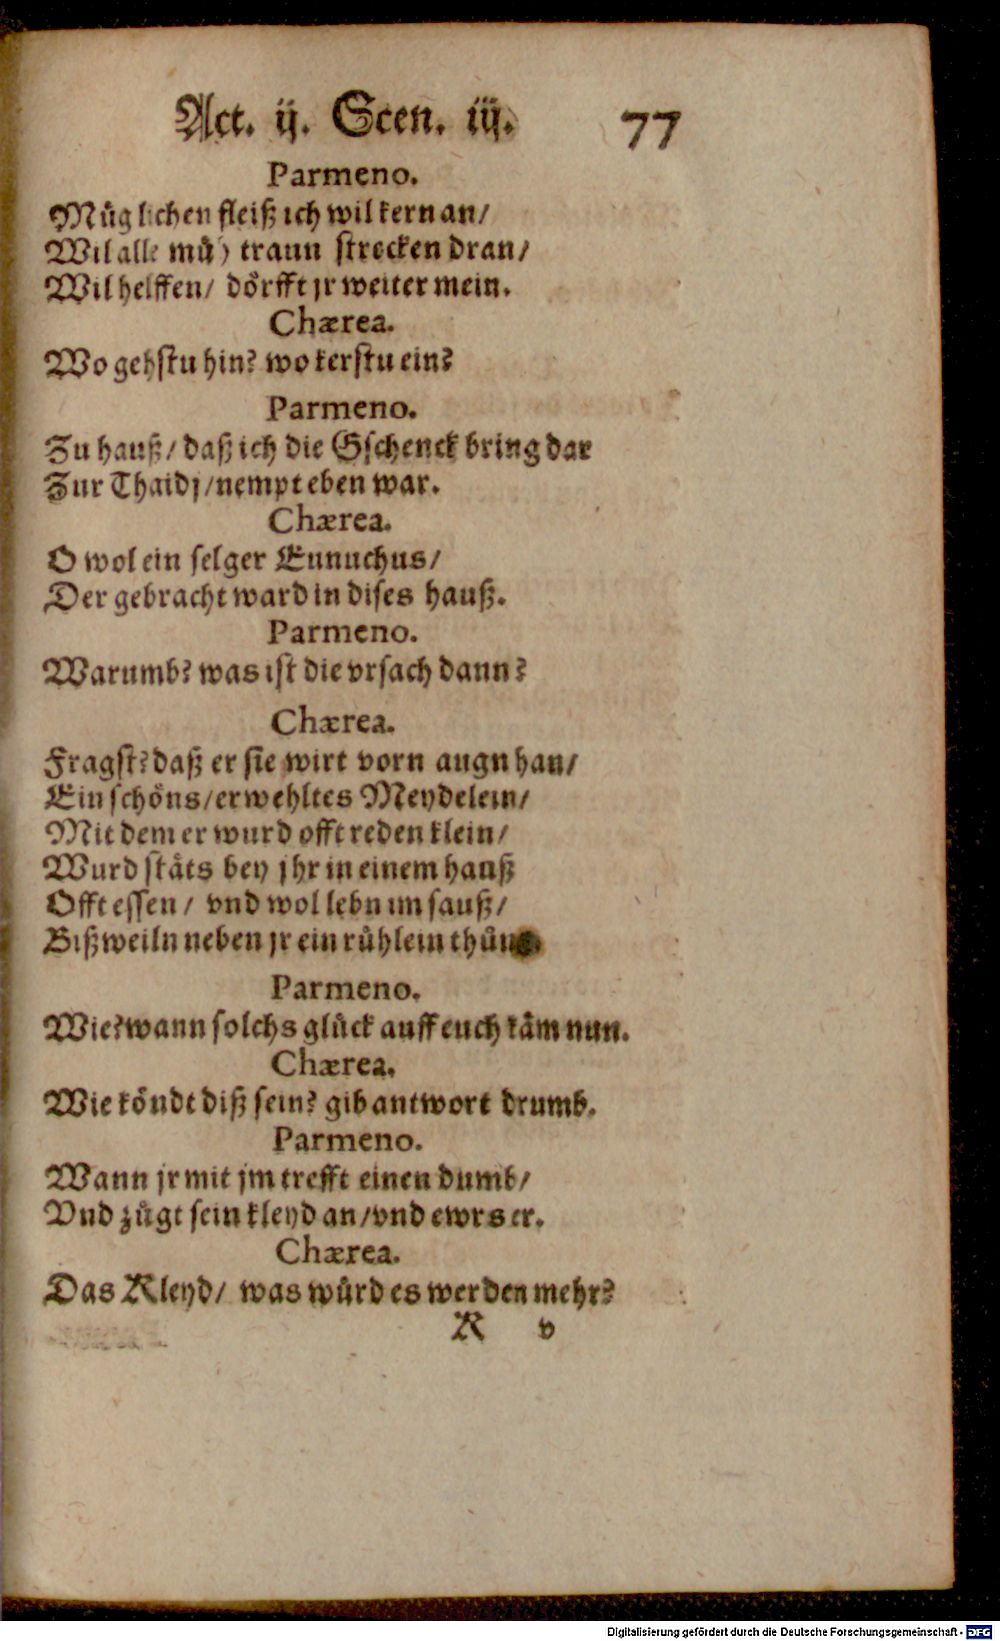 Act. ij. Scen. iij. 77
Parmeno.
Müglichen fleiß ich wil kern an/
Wil alle müh traun strecken dran/
Wil helffen/ dörfft jr weiter mein.
Chærea.
Wo gehstu hin? wo kerstu ein?
Parmeno.
Zu hauß/ daß ich die Gschenck bring dar
Zur Thaidj/ nempt eben war.
Chærea.
O wol ein selger Eunuchus/
Der gebracht ward in dises hauß.
Parmeno.
Warumb? was ist die vrsach dann?
Chærea.
Fragst? daß er sie wirt vorn augn han/
Ein schöns/ erwehltes Meydelein/
Mit dem er wurd offt reden klein/
Wurd stäts bey jhr in einem hauß
Offt essen/ vnd wol lebn im sauß/
Bißweiln neben jr ein rühlein thün.
Parmeno.
Wie? wann solchs glück auff euch käm nun.
Chærea.
Wie köndt diß sein? gib antwort drumb.
Parmeno.
Wann jr mit jm trefft einen dumb/
Vnd zügt sein kleyd an/ vnd ewrs er.
Chærea.
Das Kleyd/ was würd es werden mehr?
K v
Digitalisierung gefördert durch die Deutsche Forschungsgemeinschaft - DFG